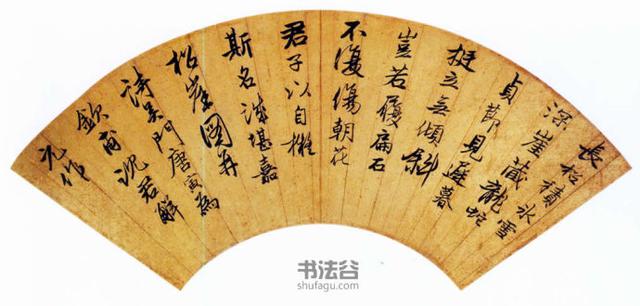 長松積氷雪
深崖藏龍蛇
貞節見歲暮
挺立無傾斜
豈若履扁石
不復傷朝花
君子以自擬
斯名誠堪嘉
松崖圖并
詩吴門唐寅為
欽甫沈君解
元作
书法谷
shufagu.com